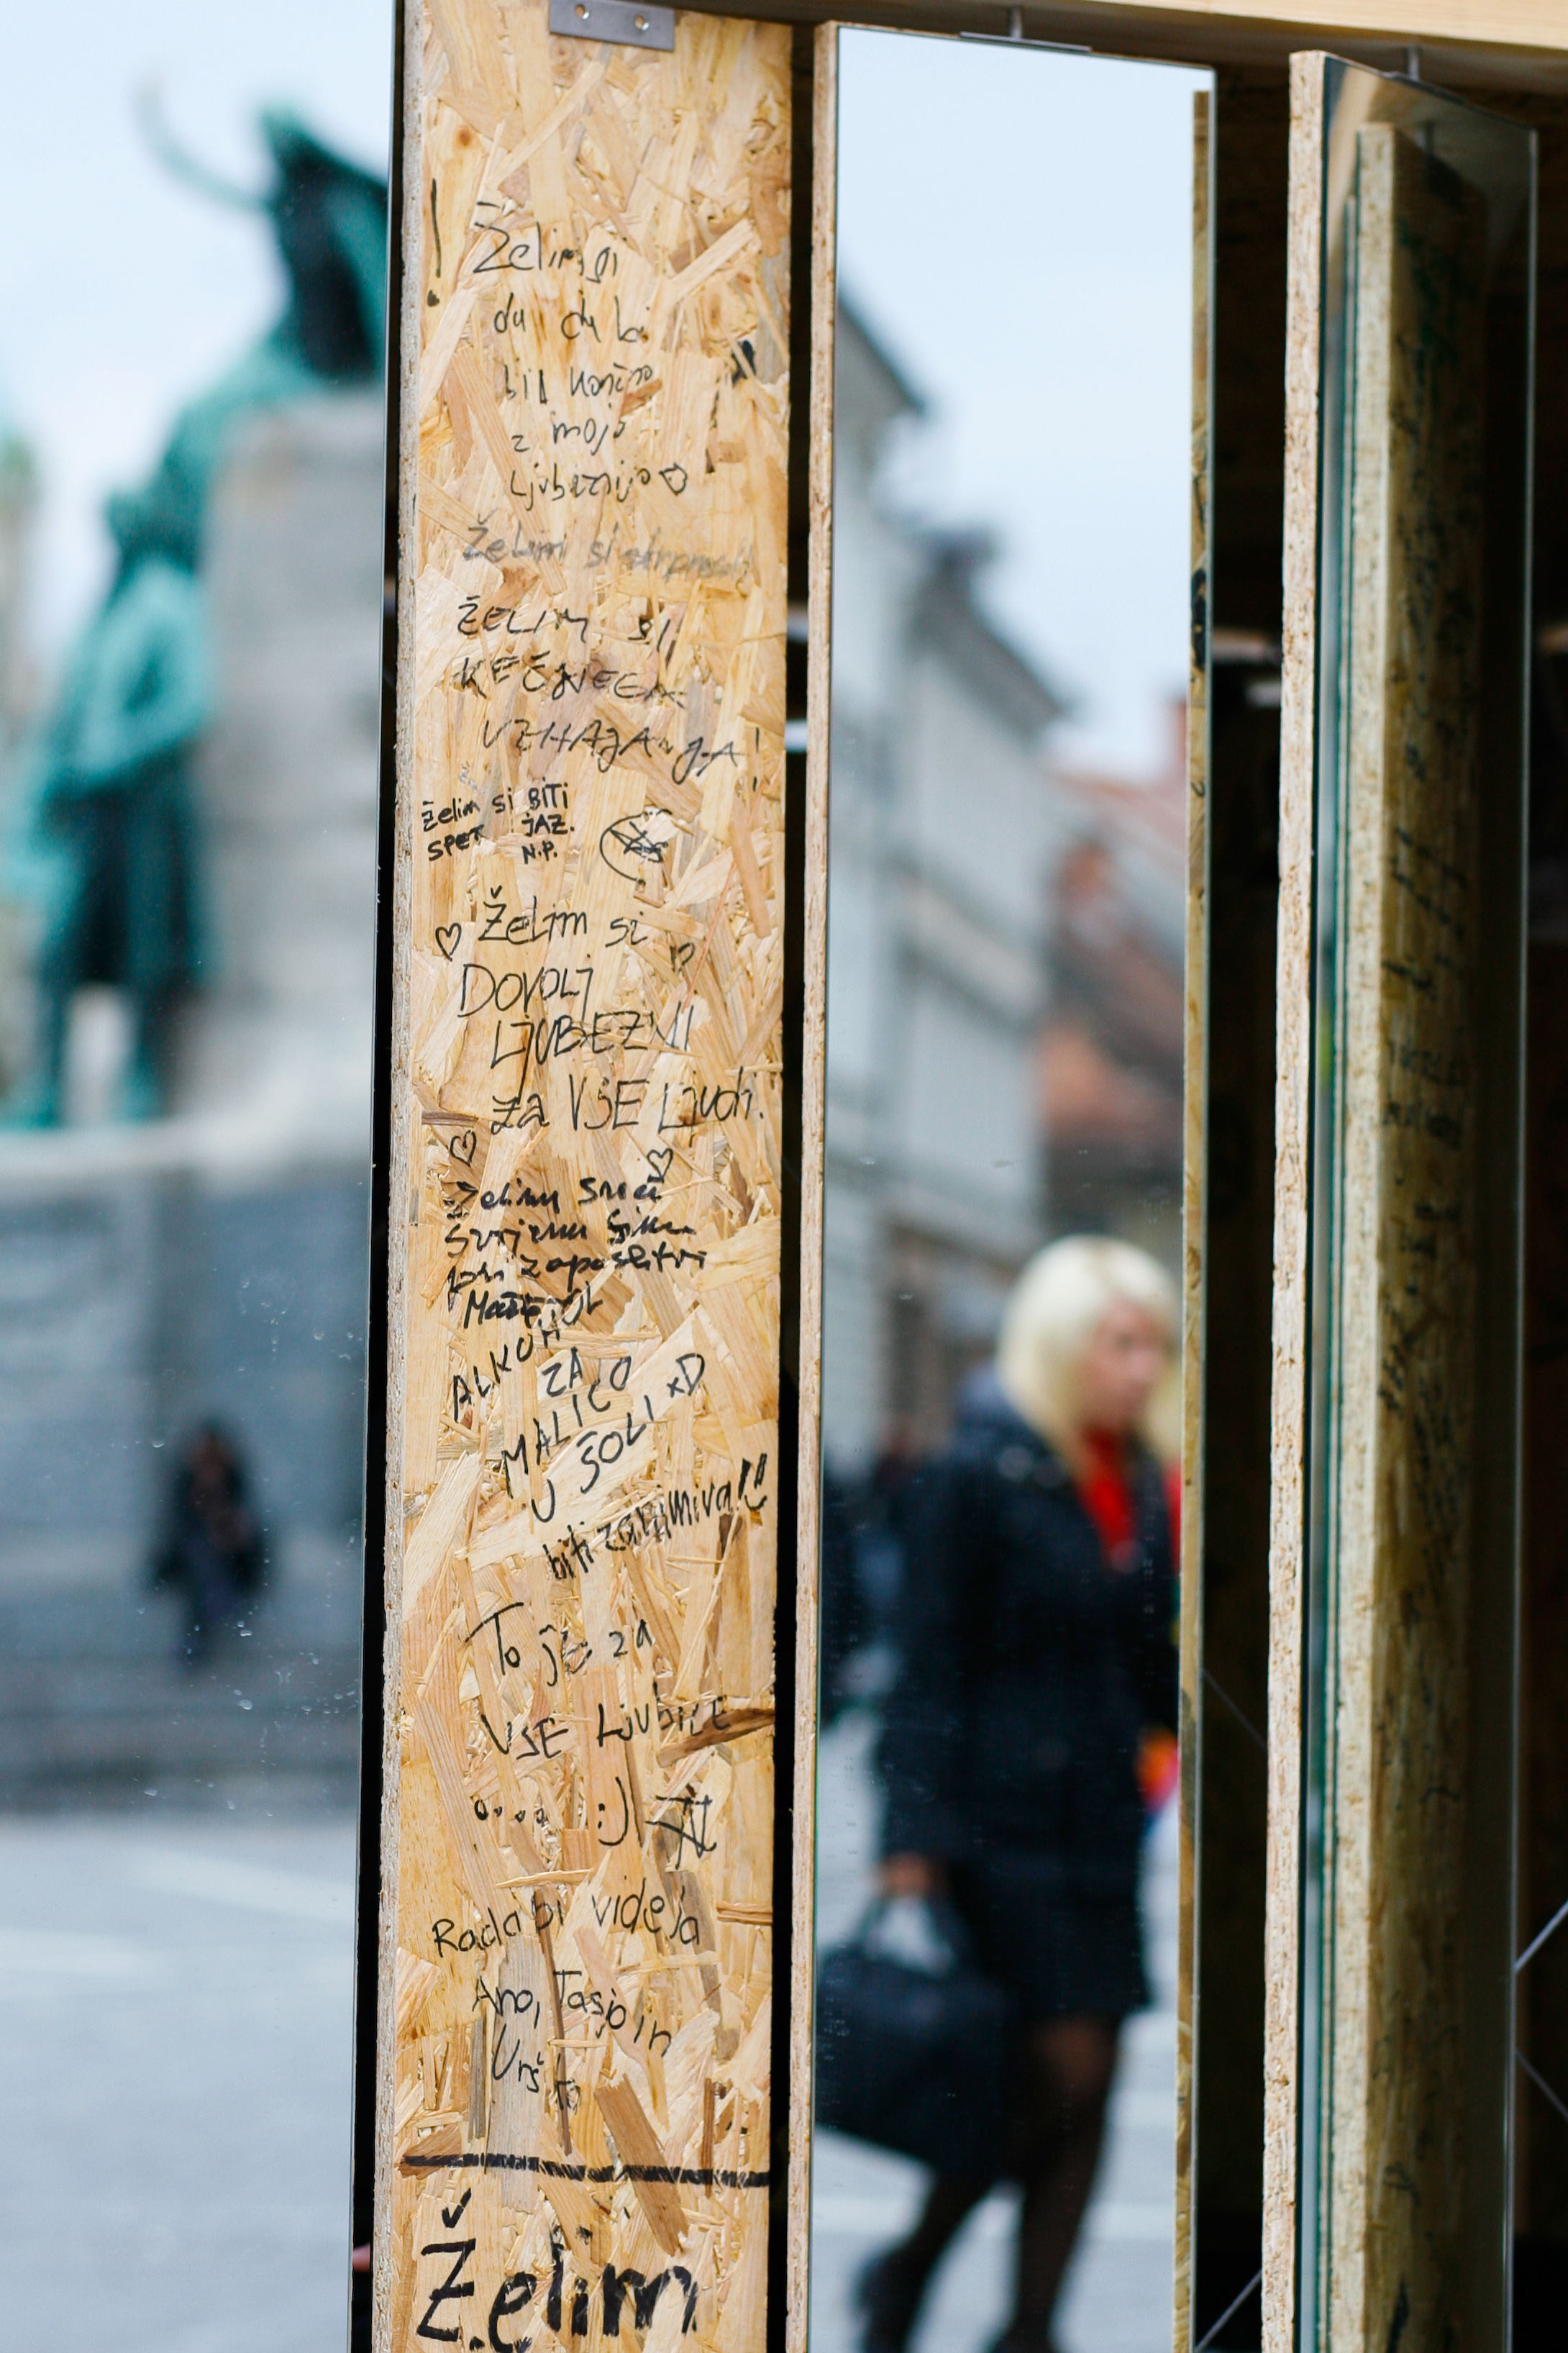 !
Želim si
da da bi
bil
z mojo
Ljubeznijo
Želim si
ŽELIM SI
VZHAJANJA!
želim si BITI
SPET JAZ.
N.P.
Želim si
DOVOLJ
LJUBEZNI
za VSE LJudi.
Želim sreči
pri zaposlitvi
ALKOHOL
ZA
MALICO
U ŠOLI xD
biti zanimiva!!
To je za
VSE Ljubice
.... :)
Rada bi videla
Ano, Tasjo in
Urško
Želim